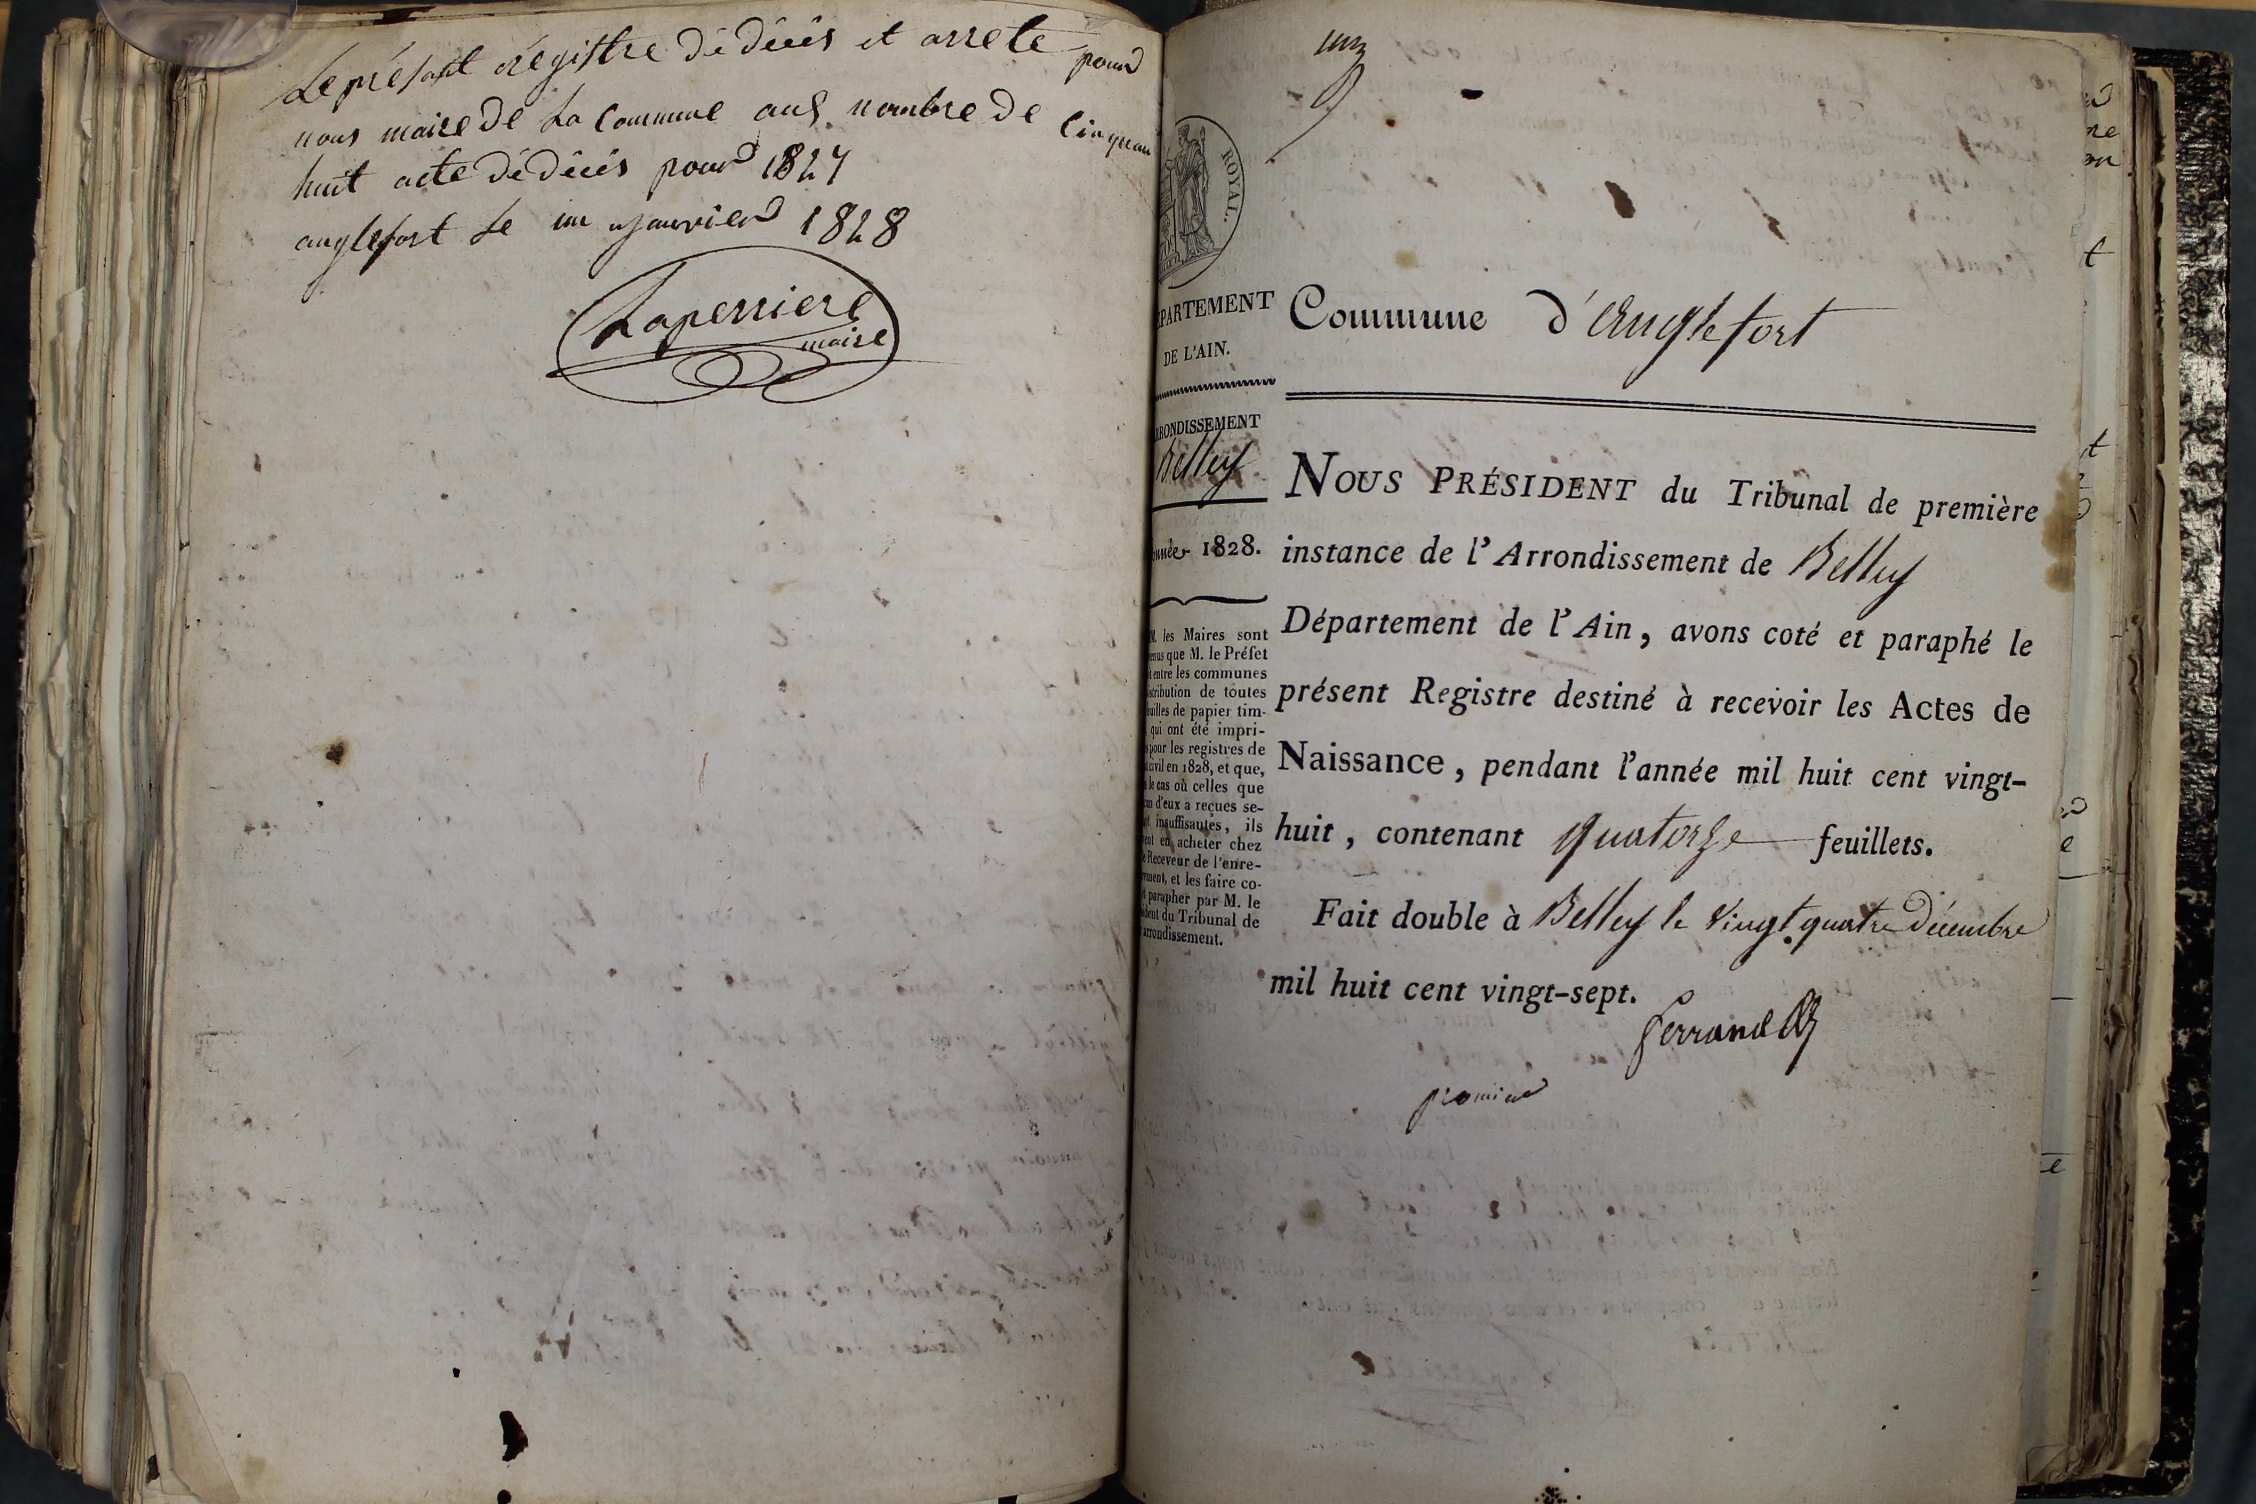 Le présant régistre dédécès et arreté pour
nous maire de La Commune aus nombre de Cinquan
huit acte dédécès pour 1827
anglefort Le un janvier 1828
Laperriere
maire
un
ROYAL.
PARTEMENT
DE L'AIN.
RONDISSEMENT
Belley
nnée 1828.
M. les Maires sont
enus que M. le Préfet
t entre les communes
stribution de toutes
uilles de papier tim-
qui ont été impri-
s pour les registres de
t civil en 1828, et que,
s le cas où celles que
un d'eux a reçues se-
nt insuffisantes, ils
ent en acheter chez
e Receveur de l'enre-
ement, et les faire co-
t parapher par M. le
sident du Tribunal de
arrondissement.
Commune d'Anglefort
NOUS PRÉSIDENT du Tribunal de première
instance de l'Arrondissement de Belley
Département de l'Ain, avons coté et paraphé le
présent Registre destiné à recevoir les Actes de
Naissance, pendant l'année mil huit cent vingt-
huit, contenant quatorze feuillets.
Fait double à Belley le vingt quatre Décembre
mil huit cent vingt-sept.
Ferrand